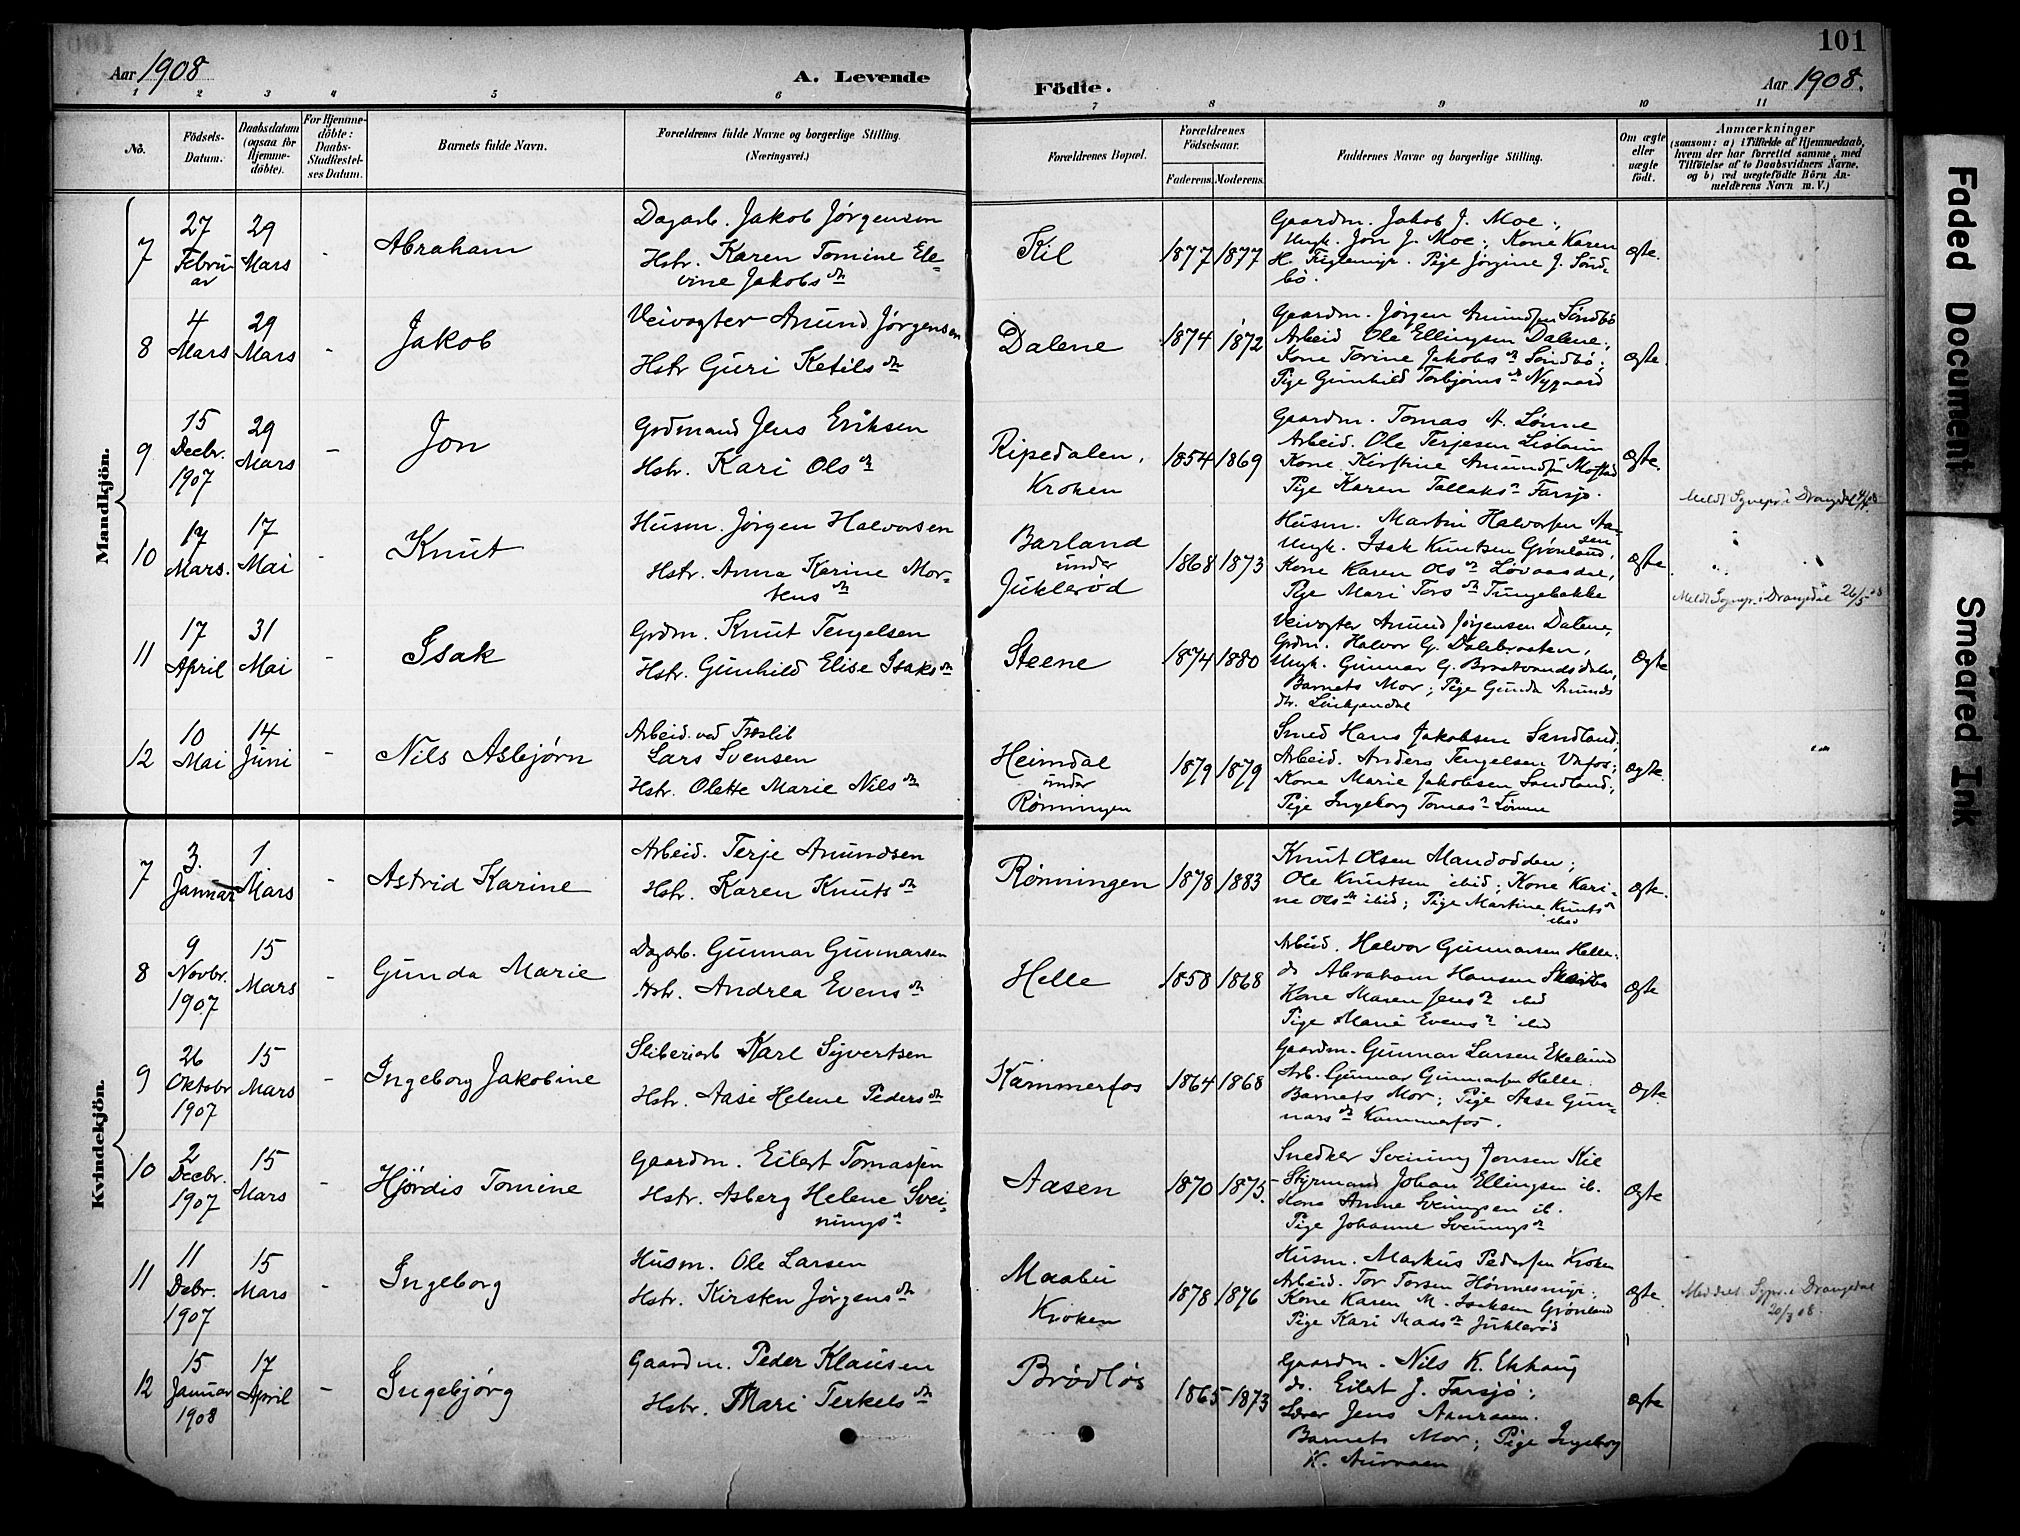 101
Aar 1908
A. Levende
Födte.
Aar 1908.
1 2 3 4 5 6 7 8 9 10 11
No.
Födsels-
Datum.
Daabsdatum
(ogsaa for
Hjemme-
döbte).
For Hjemme-
döbte:
Daabs-
Stadfæstel-
ses Datum.
Barnets fulde Navn.
Forældrenes fulde Navne og borgerlige Stilling.
(Næringsvei.)
Forældrenes Bopæl.
Forældrenes
Födselsaar.
Faderens. Moderens.
Faddernes Navne og borgerlige Stilling.
Om ægte
eller
uægte
födt.
Anmærkninger
(saasom: a) i Tilfælde af Hjemmedaab,
hvem der har forrettet samme, med
Tilföielse af to Daabsvidners Navne,
og b) ved uægtefödte Börn An-
melderens Navn m. V.)
Mandkjön.
7
27
Febru
ar
29
Mars
-
Abraham
Dagarb. Jakob Jørgensen
Hstr. Karen Tomine Ele-
vine Jakobsdtr
Kil
1877 1877
Gaardm. Jakob J. Moe;
Ungk. Jon J. Moe; Kone Karen
H. Fuglemyr. Pige Jørgine J. Sønd-
bø.
Ægte.
8
4
Mars
29
Mars
-
Jakob
Veivogter Anund Jørgensen
Hstr Guri Ketilsdtr
Dalene
1874 1872
Gaardm. Jørgen Anundsen Söndbö
Arbeid Ole Ellingsen Dalene;
Kone Torine Jakobsdtr Söndbö;
Pige Gunhild Torbjørnsdtr Nygaard
Ægte.
9
15
Decbr.
1907
29
Mars
-
Jon
Grdmand Jens Eriksen
Hstr. Kari Olsdtr
Ripedalen,
Kroken
1854 1869
Gaardm. Tomas A. Lønne
Arbeid. Ole Terjesen
Kone Kirstine
Pige Karen Tallaksdtr Farsjø.
Ægte.
Meldt Sgnepr. i Drangedal
10
17
Mars.
17
Mai
-
Knut
Husm. Jørgen Halvorsen
Hstr. Anna Karine Mor-
tensdtr
Barland
under
Juklerød
1868 1873
Husm. Martin Halvorsen Aa-
sen.
Ungk. Isak Knutsen Grønland,
Kone Karen Olsdtr Løvaasdal,
Pige Mari Torsdtr Tungebakke
Ægte
Meldt Sognepr. i Drangedal 26/5 08
11
17
April
31
Mai
-
Isak
Grdm. Knut Tengelsen
Hstr. Gunhild Elise Isaksdtr
Steene
1874 1880
Veivogter Anund Jørgensen Dalene,
Grdm. Halvor G. Dalebraaten,
Ungk. Gunnar G. Braatvandsdalen,
Barnets Mor; Pige Gunda Anunds
dtr.
Ægte
12
10
Mai
14
Juni
-
Nils Asbjørn
Arbeid. ved Træslib
Lars Svensen
Hstr. Olette Marie Nilsdtr
Heimdal
under
Rønningen
1879 1879
Smed Hans Jakobsen Sandland,
Arbeid. Anders Tengelsen Vafos;
Kone Marie Jakobsen Sandland;
Pige Ingeborg Tomasdtr Lønne
Ægte.
Kvindekjön.
7
3.
Januar
1
Mars
-
Astrid Karine
Arbeid. Terje Anundsen
Hstr. Karen Knutsdtr
Rønningen
1878 1883
Knut Olsen Mandodden;
Ole Knutsen ibid; Kone Kari-
ne Olsdtr ibid; Pige Martine Knutsdtr
ibid
Ægte.
8
9
Novbr.
1907
15
Mars
-
Gunda Marie
Dagarb. Gunnar Gunnarsen
Hstr. Andrea Evensdtr
Helle
1858 1868
Arbeid. Halvor Gunnarsen Helle.
do Abraham Hansen
Kone Maren Jensdtr ibid
Pige Marie Evensdtr ibid
Ægte
9
26
Oktobr
1907
15
Mars
-
Ingeborg Jakobine
Sliberiarb Karl Syvertsen
Hstr. Aase Helene Pedersdtr
Kammerfos
1864 1868
Gaardm. Gunnar Larsen Ekelund
Arb. Gunnar Gunnarsen Helle.
Barnets Mor; Pige Aase Gun-
narsdtr Kammerfos.
Ægte.
10
2
Decbr.
1907
15
Mars
-
Hjördis Tomine
Gaardm. Eilert Tomassen
Hstr. Asberg Helene Svei-
nungsdtr
Aasen
1870 1875.
Snedker Sveinung Jonsen Kil
Styrmand Johan Ellingsen ib.
Kone Anne Sveinungsen ib.
Pige Johanne Sveinungsdtr
Ægte
11
11
Debr.
1907
15
Mars
-
Ingeborg
Husm. Ole Larsen
Hstr. Kirsten Jørgensdtr
Maabu
Kroken
1878 1876
Husm. Markus Pedersen Kroken
Arbeid. Tor Torsen Hønnesmyr;
Kone Karen M. Isaksen Grønland
Pige Kari Madsdtr Juklerød
Ægte.
Meddelt Sgpr. i Drangedal
20/3 08.
12
15
Januar
1908
17
April
-
Ingebjørg
Gaardm. Peder Klausen
Hstr. Mari Terkelsdtr
Brødløs
1865 1873
Gaardm. Nils K. Ekhaug
do. Eilert J. Farsjø;
Lærer Jens Aanraaen.
Barnets Mor; Pige Ingeborg
K.
Ægte
Faded Document
Smeared Ink